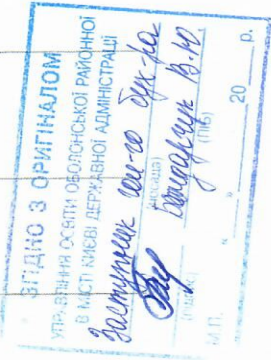 ЗГІДНО З ОРИГІНАЛОМ
УПРАВЛІННЯ ОСВІТИ ОБОЛОНСЬКОЇ РАЙОННОЇ
В МІСТІ КИЄВІ ДЕРЖАВНОЇ АДМІНІСТРАЦІЇ
Заступник гол-го бух-ра
(посада)
Бондарчук В.Ю.
(підпис) (ПІБ)
М.П. " " 20 р.